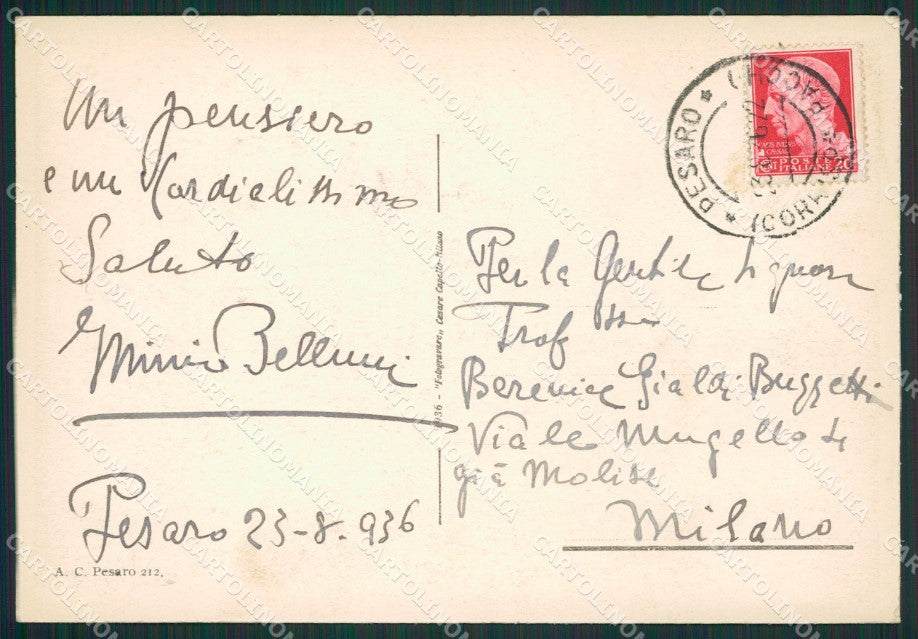 Un pensiero
e un Cordialissimo
Saluto
Bellucci
Pesaro 23-8. 936
A. C. Pesaro 212.
936 - "Fotogravure" Cesare Capello-Milano
PESARO
(CORR. PACCHI)
POSTE
ITALIANE
20
Per la Gentile Signora
Prof ssa
Berenice Gialdi Buzzetti
Viale Mugello 4
già Molise
Milano
CARTOLINOMANIA